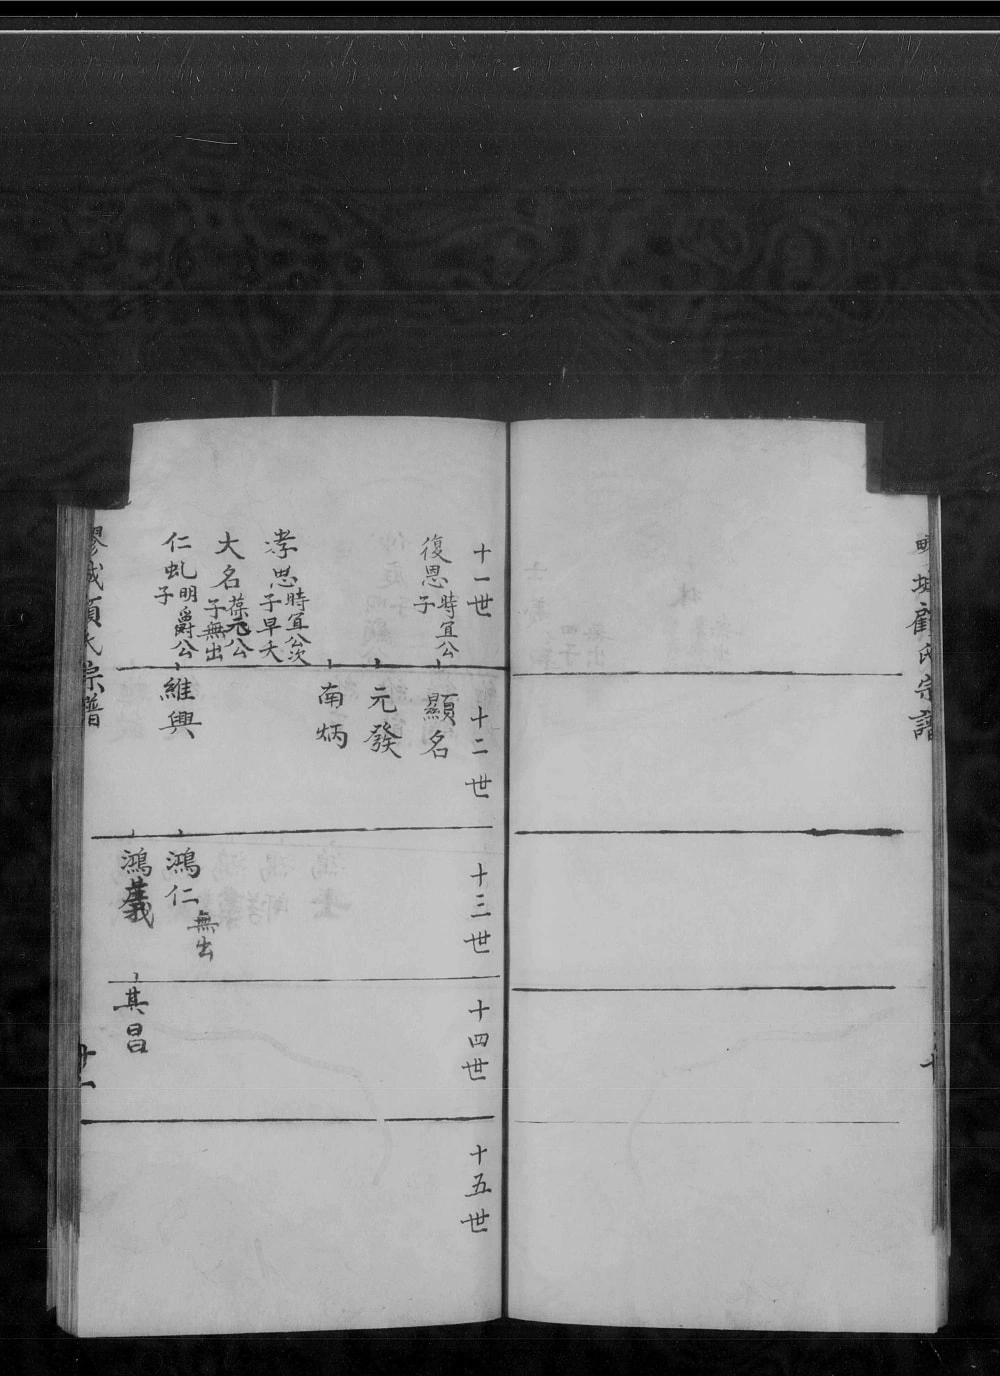 顧氏宗譜
十一世
復恩時宜公子
孝思時宜公次子早夭
大名葆元公子無出
仁虬明爵公子
十二世
顯名
元發
南炳
維興
十三世
鴻仁無出
鴻義
十四世
其昌
十五世
氏宗譜
廿一